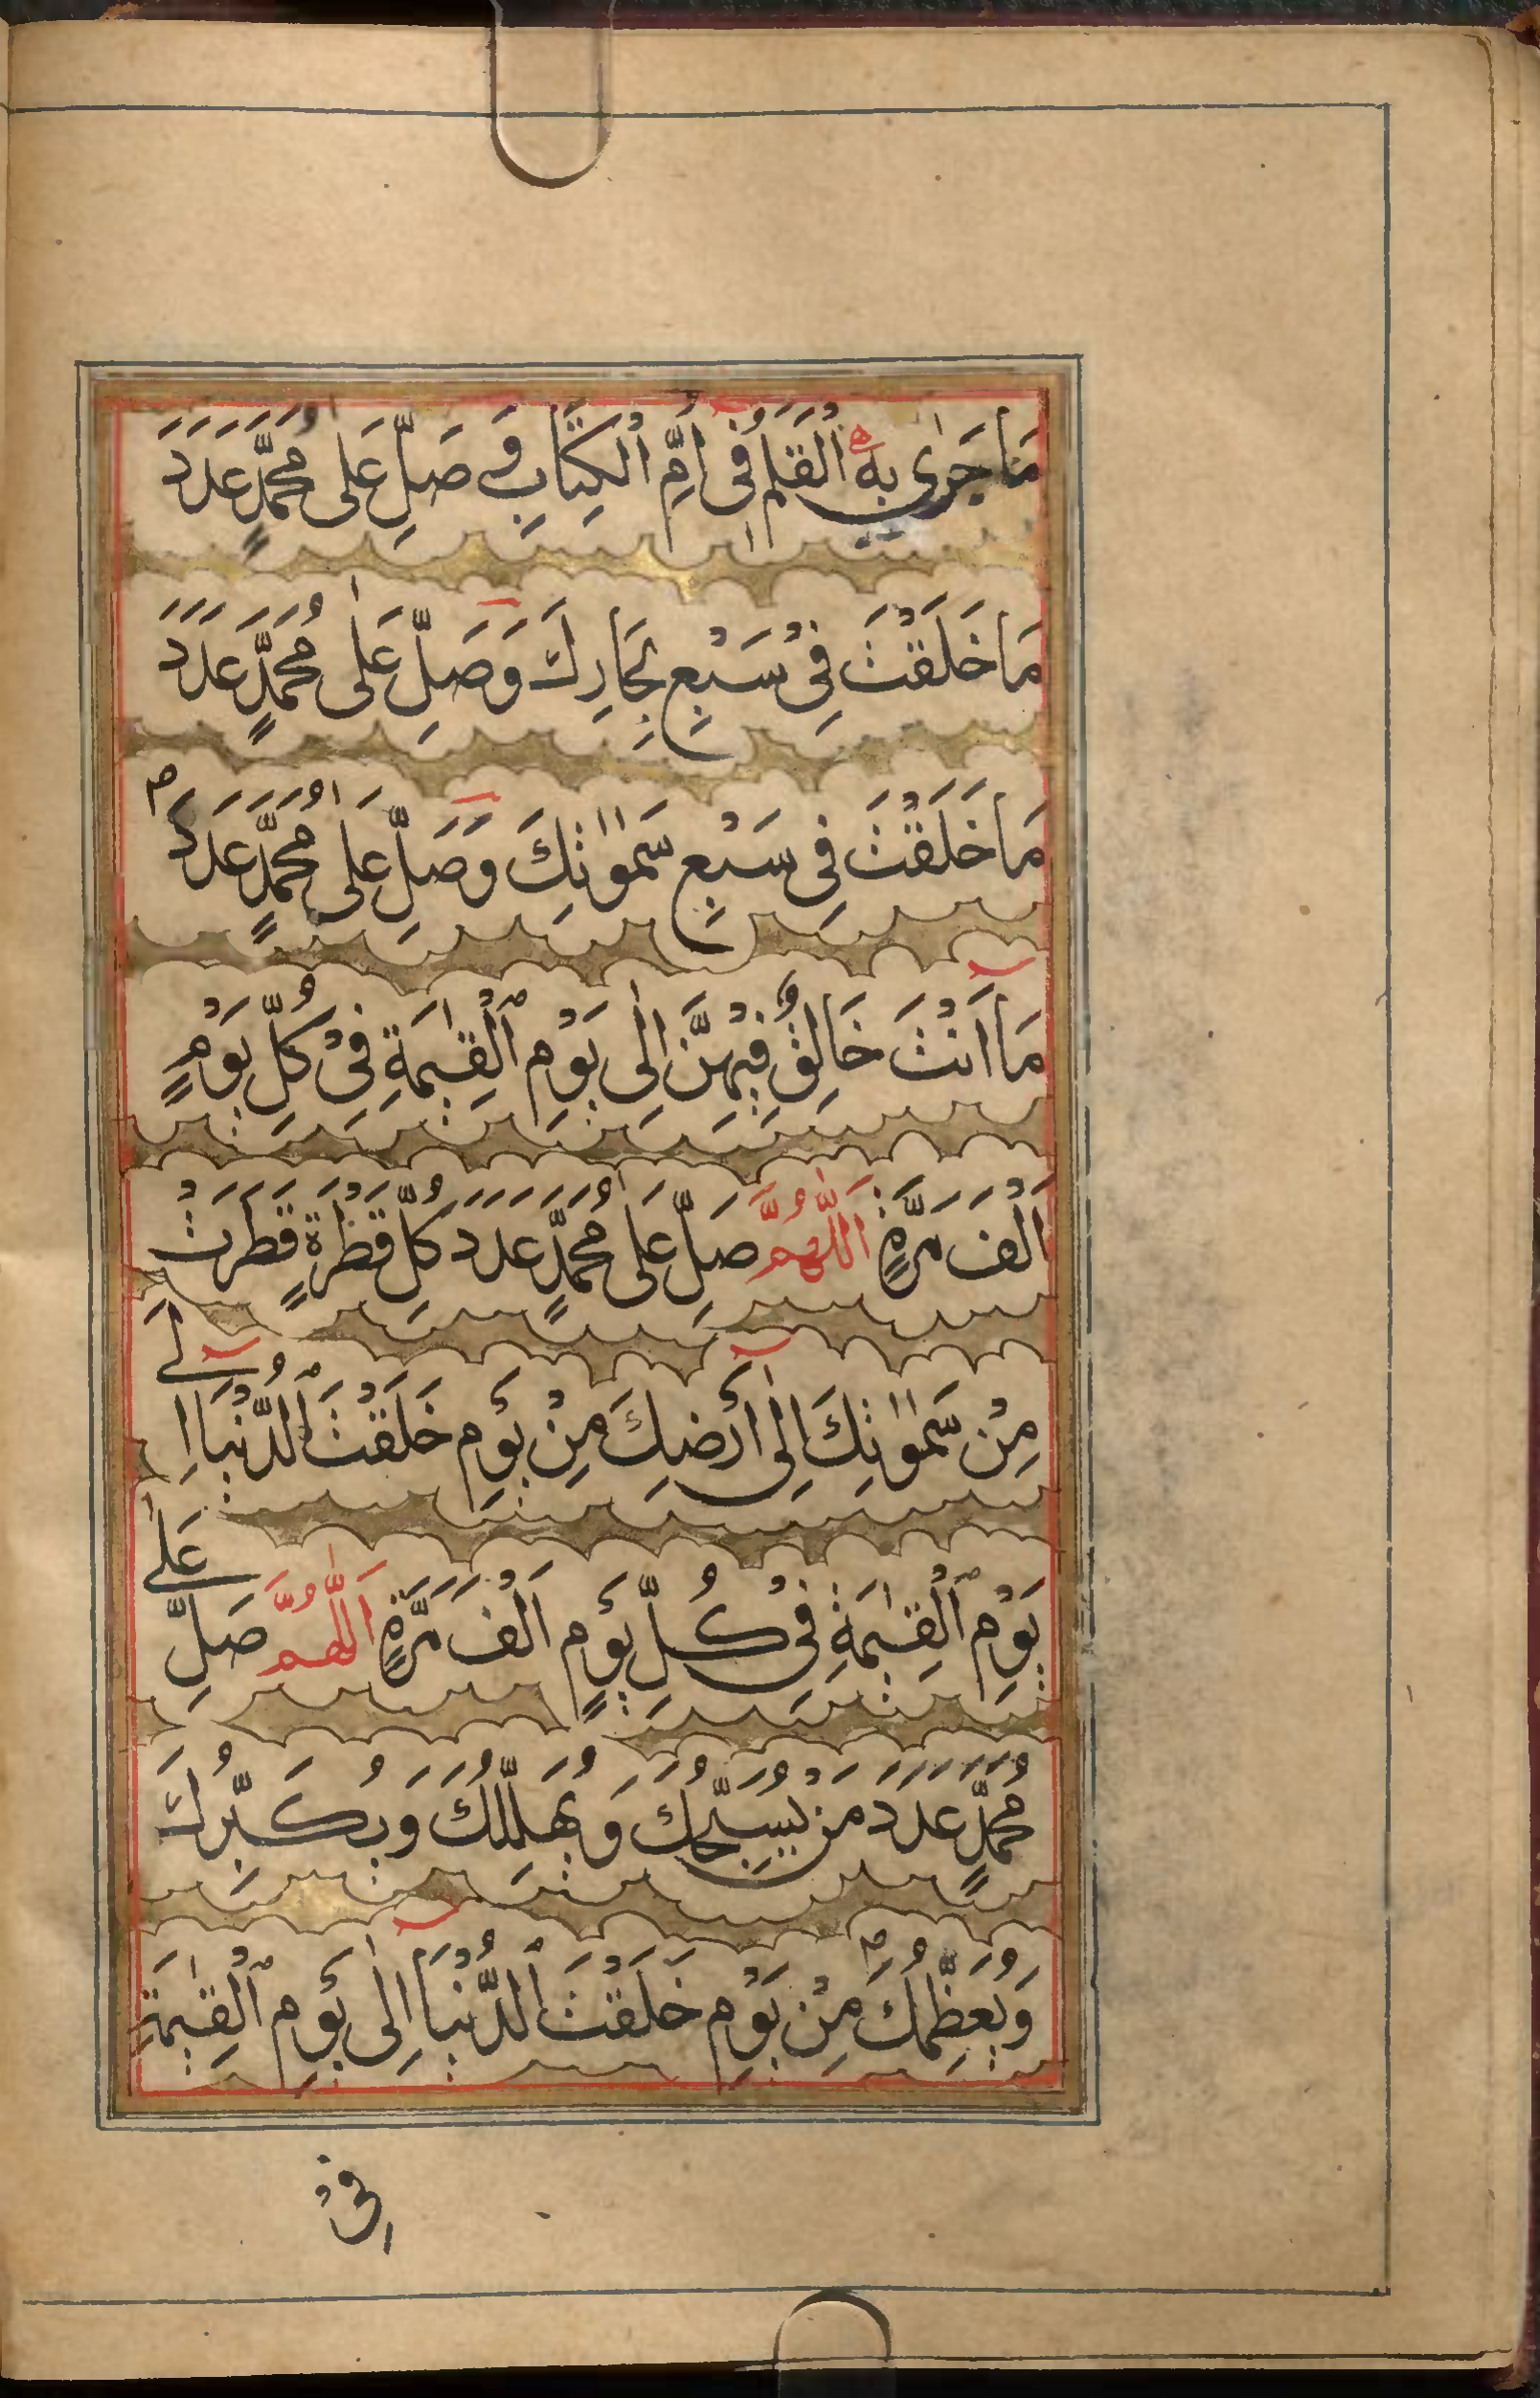 مَا جَرٰى بِهِ الْقَلَمُ فِى اُمِّ الْكِتَابِ وَ صَلِّ عَلٰى مُحَمَّدٍ عَدَدَ
مَا خَلَقْتَ فِىْ سَبْعِ بِحَارِكَ وَصَلِّ عَلٰى مُحَمَّدٍ عَدَدَ
مَا خَلَقْتَ فِى سَبْعِ سَمٰوٰتِكَ وَصَلِّ عَلٰى مُحَمَّدٍ عَدَدَ
مَا اَنْتَ خَالِقٌ فِيْهِنَّ اِلٰى يَوْمِ الْقِيٰمَةِ فِىْ كُلِّ يَوْمٍ
اَلْفَ مَرَّةٍ اَللّٰهُمَّ صَلِّ عَلٰى مُحَمَّدٍ عَدَدَ كُلِّ قَطْرَةٍ قَطَرَتْ
مِنْ سَمٰوٰتِكَ اِلٰى اَرْضِكَ مِنْ يَوْمِ خَلَقْتَ الدُّنْيَا اِلٰى
يَوْمِ الْقِيٰمَةِ فِىْ كُلِّ يَوْمٍ اَلْفَ مَرَّةٍ اَللّٰهُمَّ صَلِّ عَلٰى
مُحَمَّدٍ عَدَدَ مَنْ يُسَبِّحُكَ وَيُهَلِّلُكَ وَيُكَبِّرُكَ
وَيُعَظِّمُكَ مِنْ يَوْمِ خَلَقْتَ الدُّنْيَا اِلٰى يَوْمِ الْقِيٰمَةِ
فِىْ